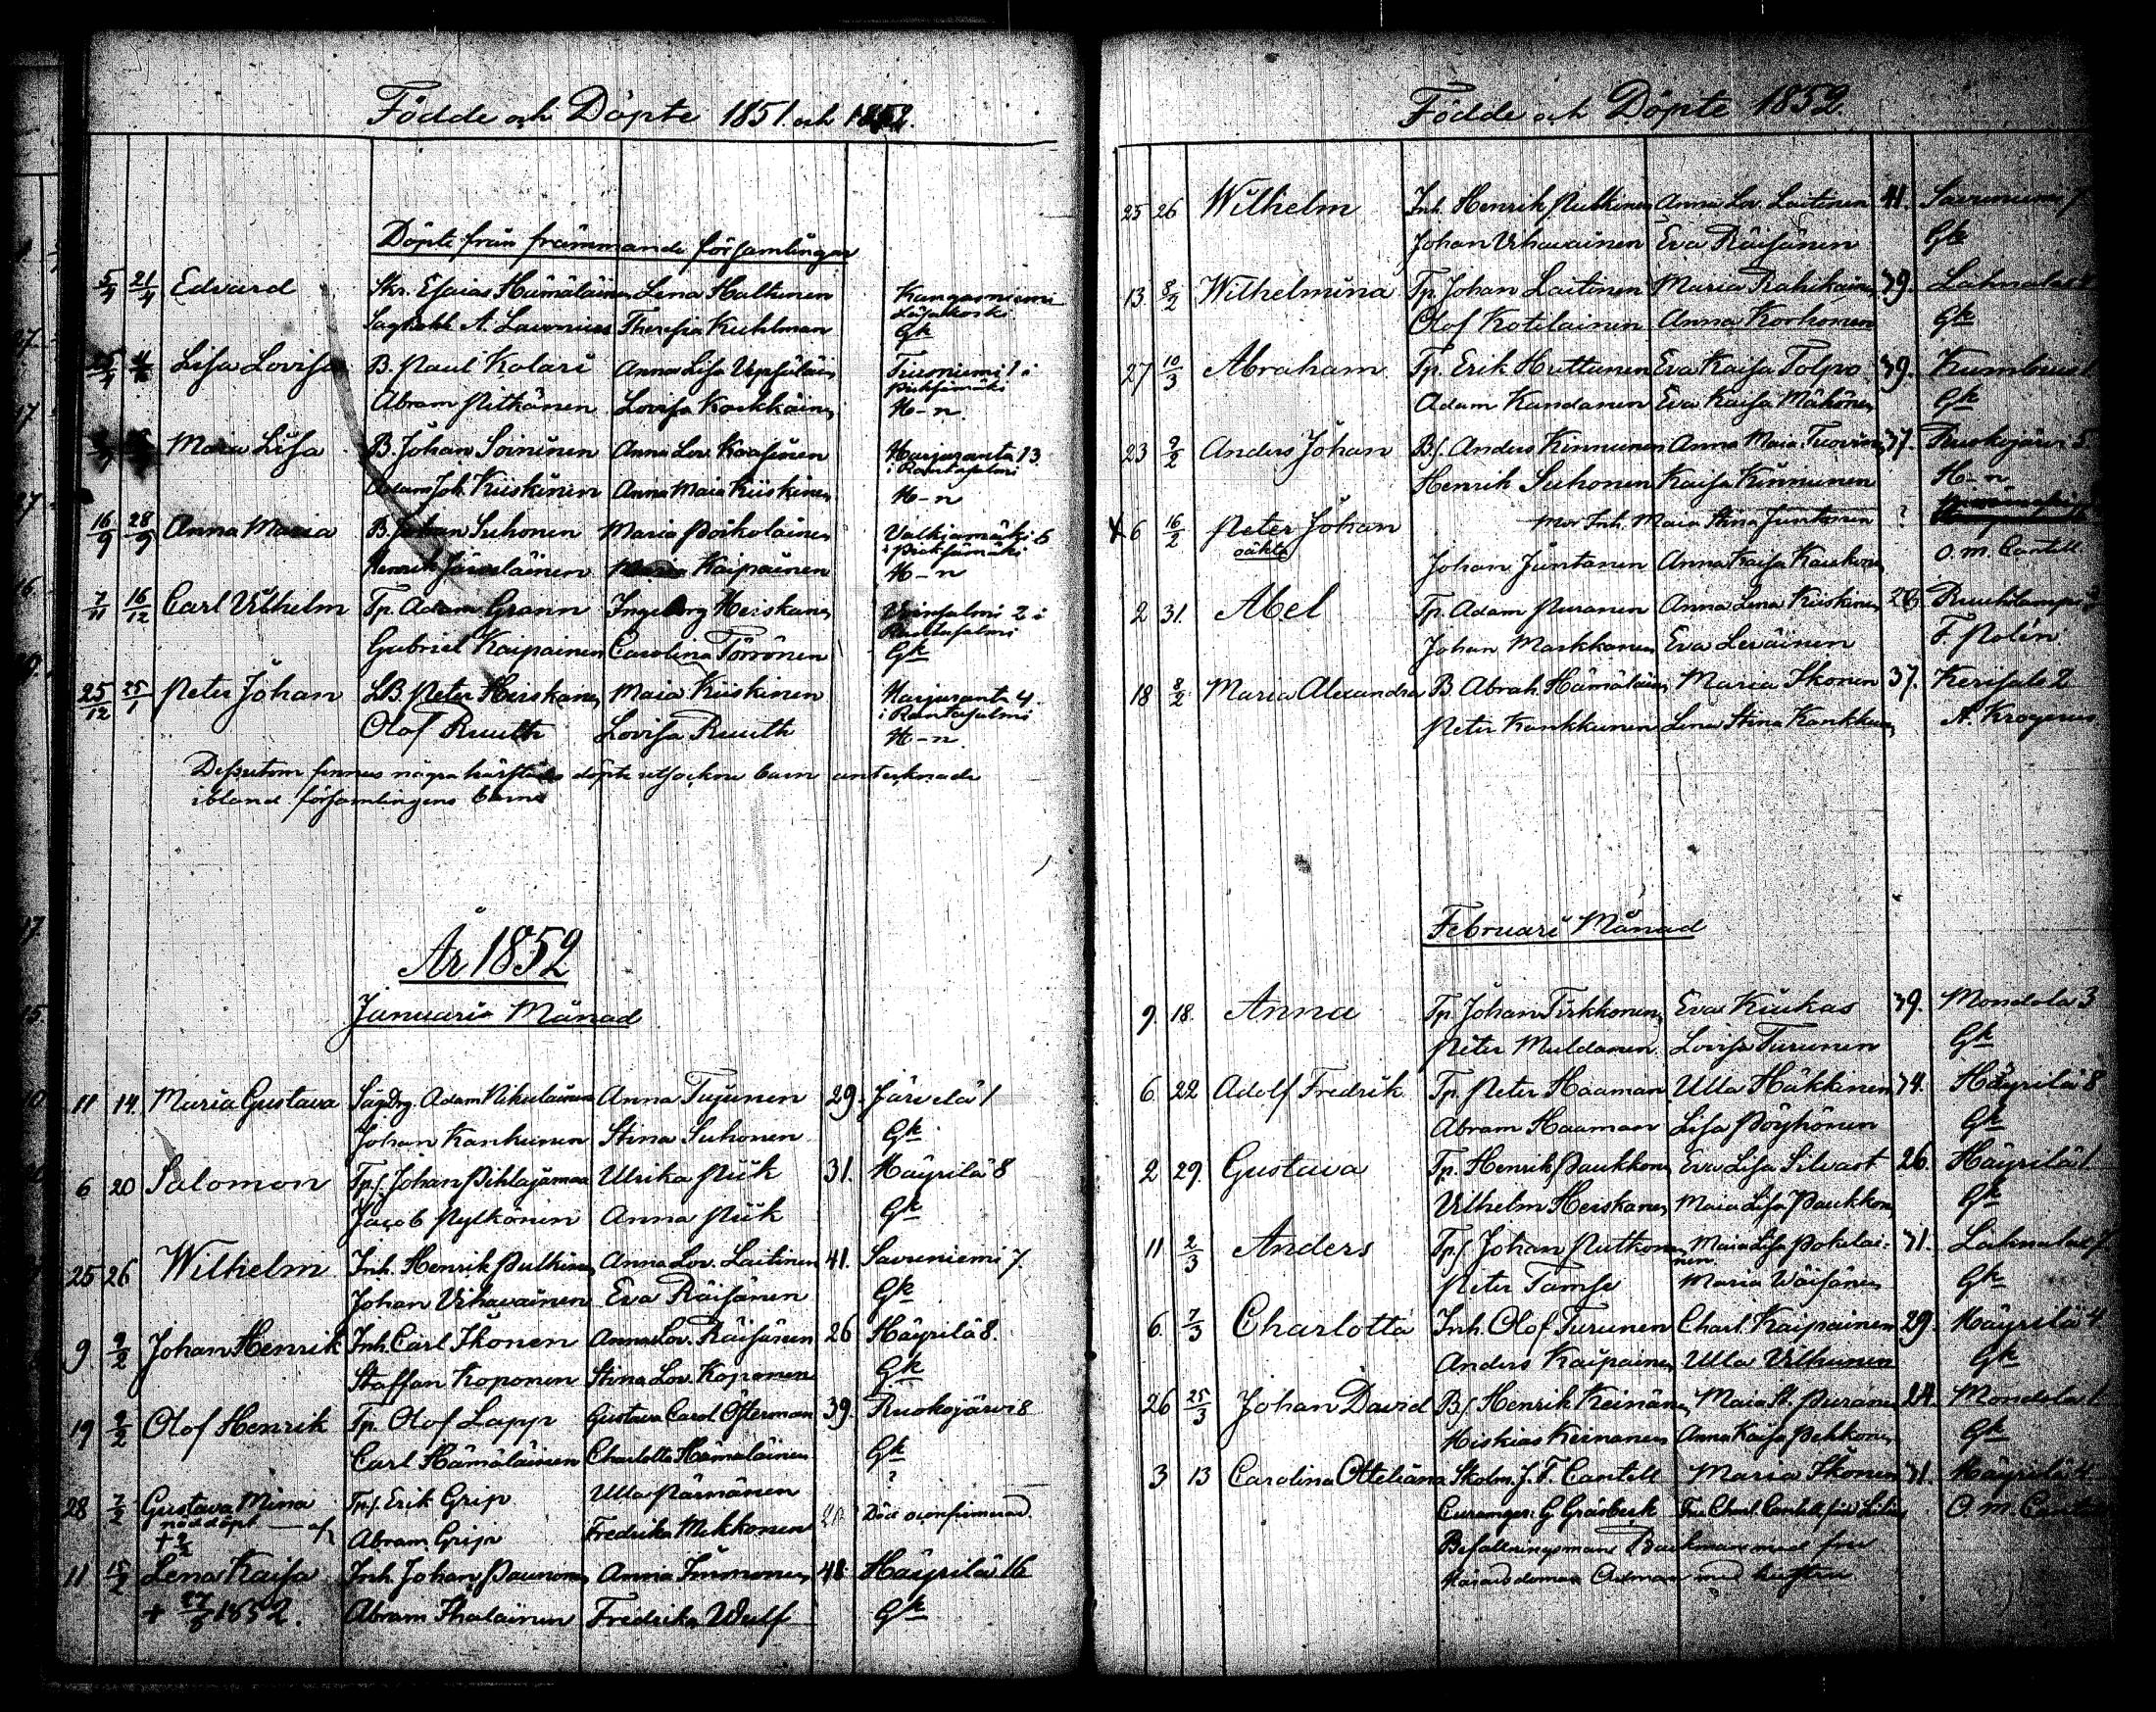 Födde och Döpte 1851 och 1852.
Döpte från främmande församlingar
5/4 21/4 Edvard Skr. Esaias Hämäläinen Lena Halkunen Kangasniemi
A. Laurenius Theresia Kuhlman Gk
Lisa Lovisa B. Paul Kolari Anna Lisa i
Abram Pitkänen Lovisa Korkkäinen H-n
Maria Lisa B. Johan Soininen Anna Lov. Kaasinen Harjuranta 13
i Rantasalmi
Adam Joh. Kiiskinen Anna Maia Kiiskinen H-n
16/9 28/9 Anna Maria B. Johan Suhonen Maria Poikolainen Valkiamäki 5
i Pieksämäki
Henrik Kaipainen H-n
7/11 16/12 Carl Vilhelm Tp. Adam Grann Ingeborg Heiskanen 2 i
Rantasalmi
Gabriel Kaipainen Carolina Törrönen Gk
25/12 25/1 Peter Johan LB. Peter Heiskanen Maia Kiiskinen Harjuranta 4.
i Rantasalmi
Olof Ruuth Lovisa Ruuth H-n
Dessutom finnes några härstädes döpte utsockne barn antecknade
ibland församlingens barn
År 1852
Januari Månad
11 14. Maria Gustava Adam Nikulainen Anna Tujunen 29. Järvelä 1
Johan Kanhunen Stina Suhonen Gk
6 20 Salomon Tp.s. Johan Pihlajamaa Ulrika Piik 31. Häyrilä 8
Jacob Pylkönen Anna Piik Gk
25 26 Wilhelm Inh. Henrik Pulkinen Anna Lov. Laitinen 41. Savuniemi 7.
Johan Vihavainen Eva Räisänen Gk
9. 9/2 Johan Henrik Inh. Carl Ikonen Anna Lov. Räisänen 26 Häyrilä 8.
Staffan Koponen Stina Lov. Koponen Gk
19 9/2 Olof Henrik Tp. Olof Lapp Gustava Carol. Österman 39. Ruokojärvi 8
Carl Hämäläinen Charlotta Hämäläinen Gk
28 7/2 Gustava Mina Tp.s. Erik Grip Ulla Pärnänen ?
nöddöpt Abram Grip Fredrika Mikkonen
11 15/2 Lena Kaisa Inh. Johan Paunonen Anna Immonen 48 Häyrilä 16
+ 1852. Abram Ihalainen Fredrika Wulf Gk
Födde och Döpte 1852.
25 26 Wilhelm Inh. Henrik Pulkinen Anna Lov. Laitinen 41. Savuniemi 7
Johan Vihavainen Eva Räisänen Gk
13. 8/2 Wilhelmina Tp. Johan Laitinen Maria Rahikainen 39.
Olof Kotilainen Anna Korhonen Gk
27 10/3 Abraham Tp. Erik Huttunen Eva Kaisa Tolpo 39.
Adam Kandanen Eva Kaisa Mähönen Gk
23 9/2 Anders Johan B.s. Anders Kinnunen Anna Maia Tuovinen 37. Ruokojärvi 5
Henrik Suhonen Kaisa Kinnunen H-n
X 6 16/2 Peter Johan Mor Inh. Maia Stina Juntonen ?
oäkta Johan Juntanen Anna Kaisa O. m. Cantell
2 31. Abel Tp. Adam Puranen Anna Lena Kiiskinen
Johan Markkanen Eva Leväinen F. Polén
18 8/2 Maria Alexandra B. Abrah. Hämäläinen Maria Ikonen 37. Kerisalo 2
Peter Kankkunen Lena Stina Kankkunen A. Krogerus
Februari Månad
9. 18. Anna Tp. Johan Tirkkonen Eva Kiukas 39. Mondola 3
Peter Muldanen Lovisa Turunen Gk
6. 22 Adolf Fredrik Tp. Peter Haaman Ulla Häkkinen 34. Häyrilä 8
Abram Haaman Lisa Pöyhönen Gk
2 29. Gustava Tp. Henrik Paukkonen Eva Lisa Silvast 26. Häyrilä 1
Vilhelm Heiskanen Maia Lisa Paukkonen Gk
11 2/3 Anders Tp.s Johan Putkonen Maia Lisa Pokelai- 31.
nen
Peter Tamse Maria Wäisänen Gk
6. 7/3 Charlotta Inh. Olof Turunen Charl. Kaipainen 29. Häyrilä 4
Anders Kaipainen Ulla Vilhunen Gk
26 25/3 Johan David B.s. Henrik Keinänen Maia St. Puranen 24. Mondola 1
Hiskias Keinanen Anna Kaisa Pekkonen Gk
3 13 Carolina Otteliana Skolm. J. F. Cantell Maria Ikonen 31. Häyrilä
G. Gråsbeck Fru Charl. Cantell O. m.
Befallningsman Backman med fru